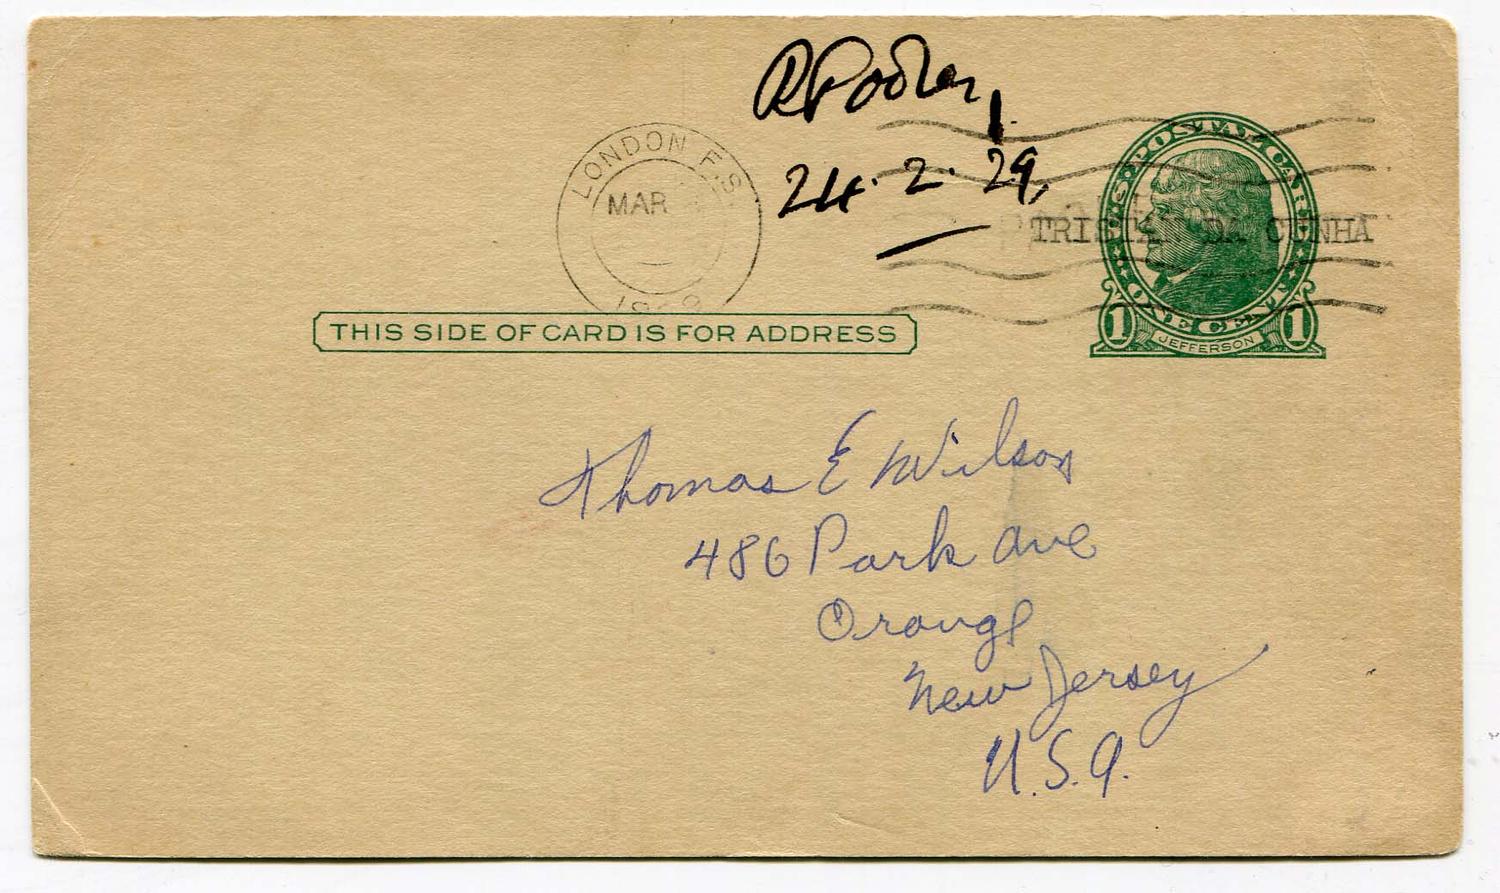 RPooley
24.2.29
LONDON F.S.
MAR
TRISTAN DA CUNHA
U.S. POSTAL CARD
ONE CENT
1 JEFFERSON 1
THIS SIDE OF CARD IS FOR ADDRESS
Thomas E Wilson
486 Park Ave
Orange
New Jersey
U.S.A.